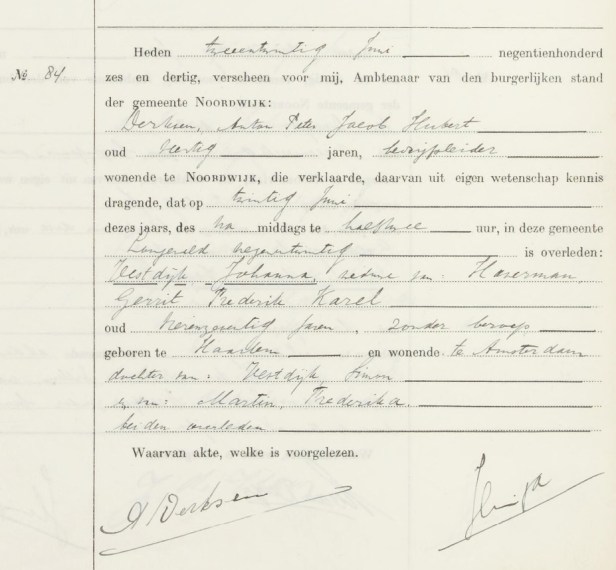 Heden tweeentwintig Juni negentienhonderd
№ 84 zes en dertig, verscheen voor mij, Ambtenaar van den burgerlijken stand
der gemeente NOORDWIJK:
Derksen, Anton Peter Jacob Hubert
oud veertig jaren, bedrijfsleider
wonende te NOORDWIJK, die verklaarde, daarvan uit eigen wetenschap kennis
dragende, dat op twintig Juni
dezes jaars, des na middags te half twee uur, in deze gemeente
negenentwintig is overleden:
Vestdijk Johanna, weduwe van: Haserman,
Gerrit Frederik Karel
oud jaren, zonder beroep
geboren te Haarlem en wonende te Amsterdam
dochter van: Vestdijk Simon
en van: Martin, Frederika.
beiden overleden
Waarvan akte, welke is voorgelezen.
A Derksen